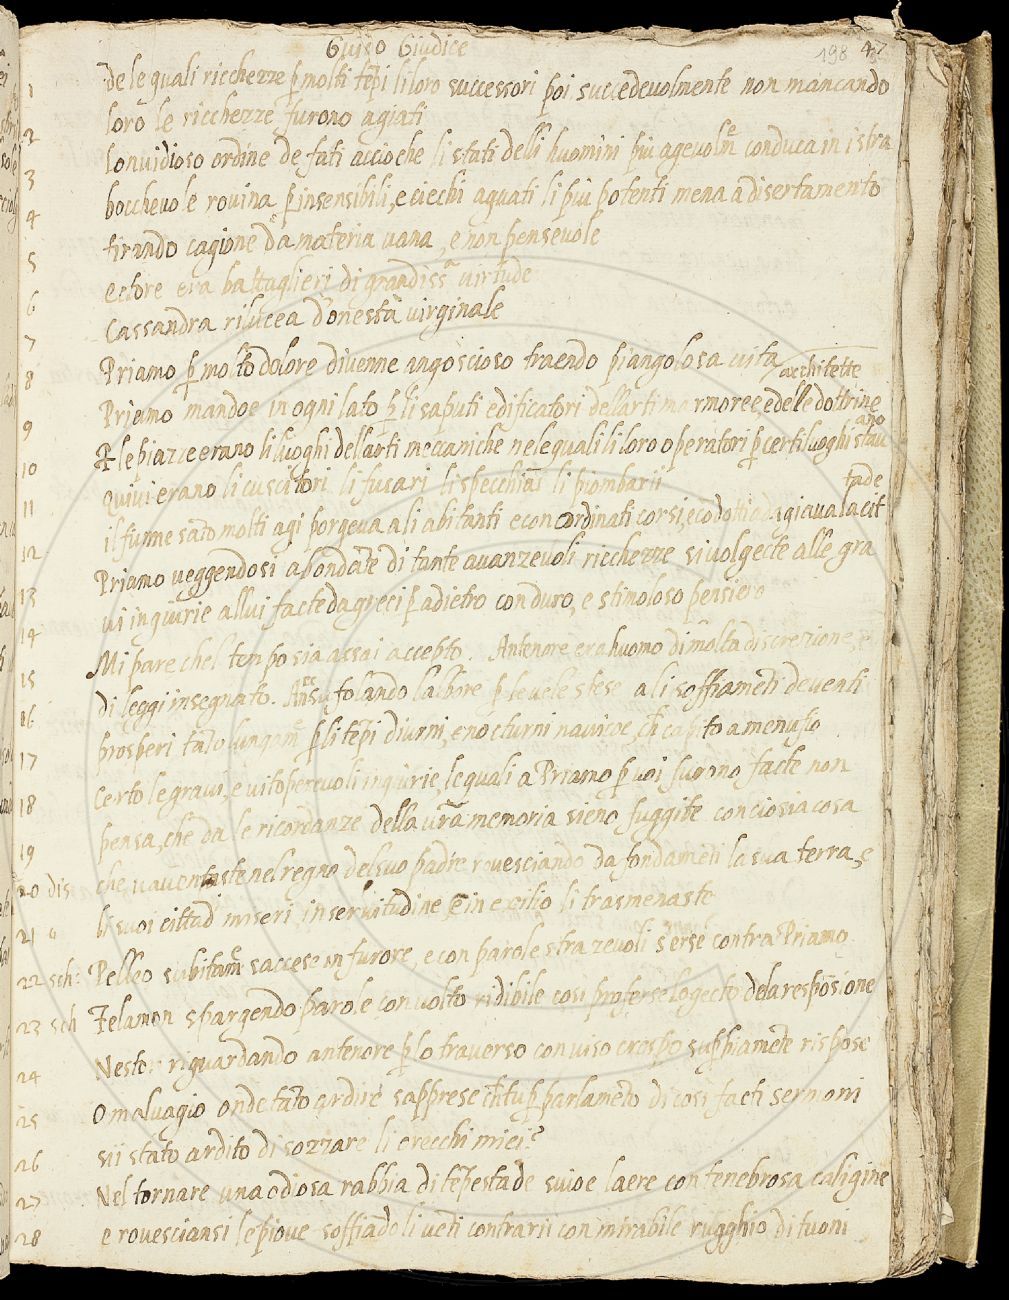 Guiso Giudice
198 47
1 de le quali ricchezze p̱ molti tẽpi li loro successori poi succedevolmente non mancando
loro le ricchezze furono agiati
2 lonvidioso ordine de fati accioche li stati delli huomini piu agevolm̃ conduca in istra
3 bocchevole rovina p̱ insensibili, e ciechi aguati li piu potenti mena a disertamento
4 tirando cagione da materia vana, e non pensevole
5 ectore era battaglieri di grandiss.ª virtude
6 Cassandra rilucea d'onestà virginale
7 Priamo p̱ molto dolore divenne angoscioso traendo piangolosa vita
architette
8 Priamo mandoe in ogni lato p̱ li saputi edificatori dell arti marmoree e delle dottrine
9 le piazze erano li luoghi dell arti meccaniche nele quali li loro operatori p̱ certi luoghi stav
ano
10 Quivi erano li cuscitori li fusari li specchiai li piombarii
tade
11 il fiume molti agi porgeva a li abitanti e con cordinati corsi, e cõdotti la cit
12 Priamo veggendosi abondãte di tante avanzevoli ricchezze si volgecte alle gra
13 vi ingiurie allui facte da greci p̱ adietro con duro, e stimoloso pensiero
14 Mi pare chel tenpo sia assai accepto. Antenore era huomo di molta discrezione, e
15 di leggi insegnato. sufolando p̱ le vele stese a li soffiamẽti de venti
16 prosperi tãto lungam̃ p̱ li tẽpi diurni, e nocturni navicoe, ch̃ capito a menusto
17 Certo le gravi, e vitoperevoli ingiurie, le quali a Priamo p̱ voi furono facte non
18 pensa, che da le ricordanze della vr̃a memoria sieno fuggite conciosia cosa
19 che nel regno del suo padre rovesciando da fondamẽti la sua terra, e
20 dis
21 li suoi cittad miseri in servitudine, e in exilio li trasmenaste
22 sch: Pelleo subitam̃ saccese in furore, e con parole strazevoli s erse contra Priamo
23 sch Telamon spargendo parole con volto ridibile cosi proferse logecto dela respõsione
24 Nestor riguardando antenore p̱ lo traverso con viso crespo suppiamẽte rispose
25 O malvagio onde tãto ardire sapprese ch̃ tu p̱ parlamẽto di cosi facti sermoni
26 sii stato ardito di sozzare li orecchi miei?
27 Nel tornare una odiosa rabbia di tẽpestade l aere con tenebrosa caligine
28 e rovesciansi le piove soffiãdo li vẽti contrarii con mirabile rugghio di tuoni